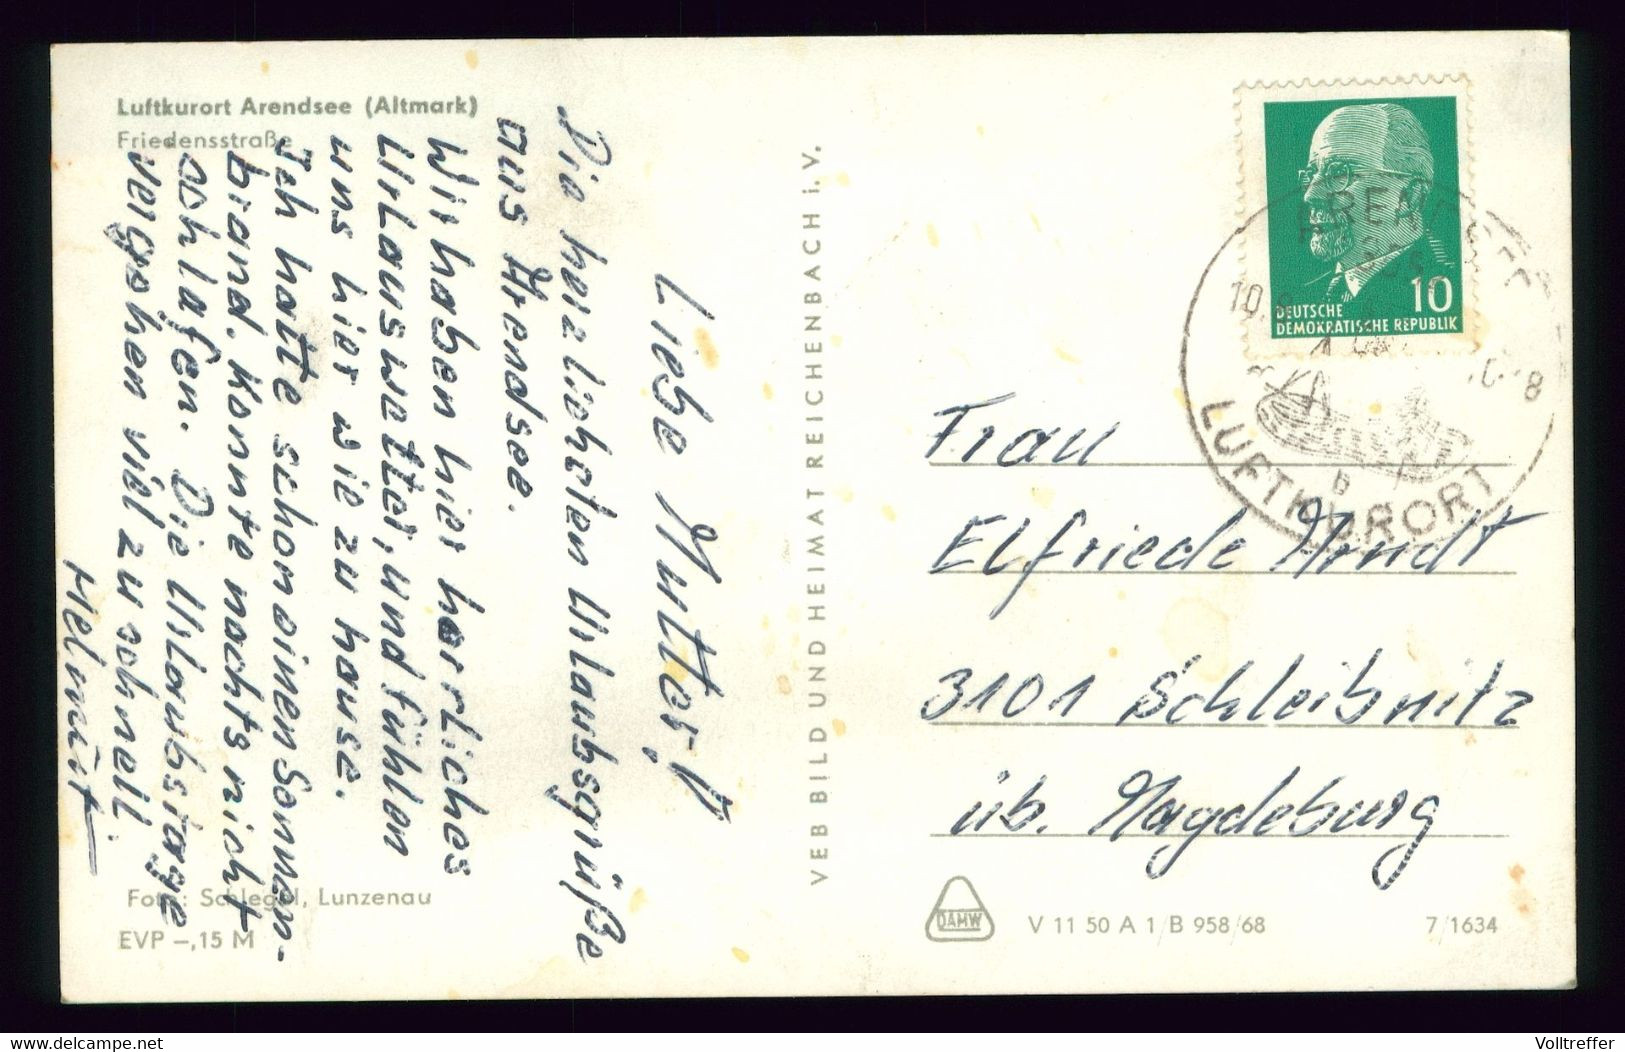 Luftkurort Arendsee (Altmark)
Friedensstraße
Liebe Mutter!
Die herzlichsten Urlaubsgrüße
aus Arendsee.
Wir haben hier herrliches
Urlauswetter, und fühlen
uns hier wie zu hause.
Ich hatte schon einen Sonnen-
brand. Konnte nachts nicht
schlafen. Die Urlaubstage
vergehen viel zu schnell
Helmut
Foto: Schlegel, Lunzenau
EVP –,15 M
VEB BILD UND HEIMAT REICHENBACH i. V.
10
DEUTSCHE
DEMOKRATISCHE REPUBLIK
ARENDSEE
LUFTKURORT
b
Frau
Elfriede Arndt
3101 Schleibnitz
üb. Magdeburg
DAMW
V 11 50 A 1/B 958/68
7/1634
www.delcampe.net
Volltreffer